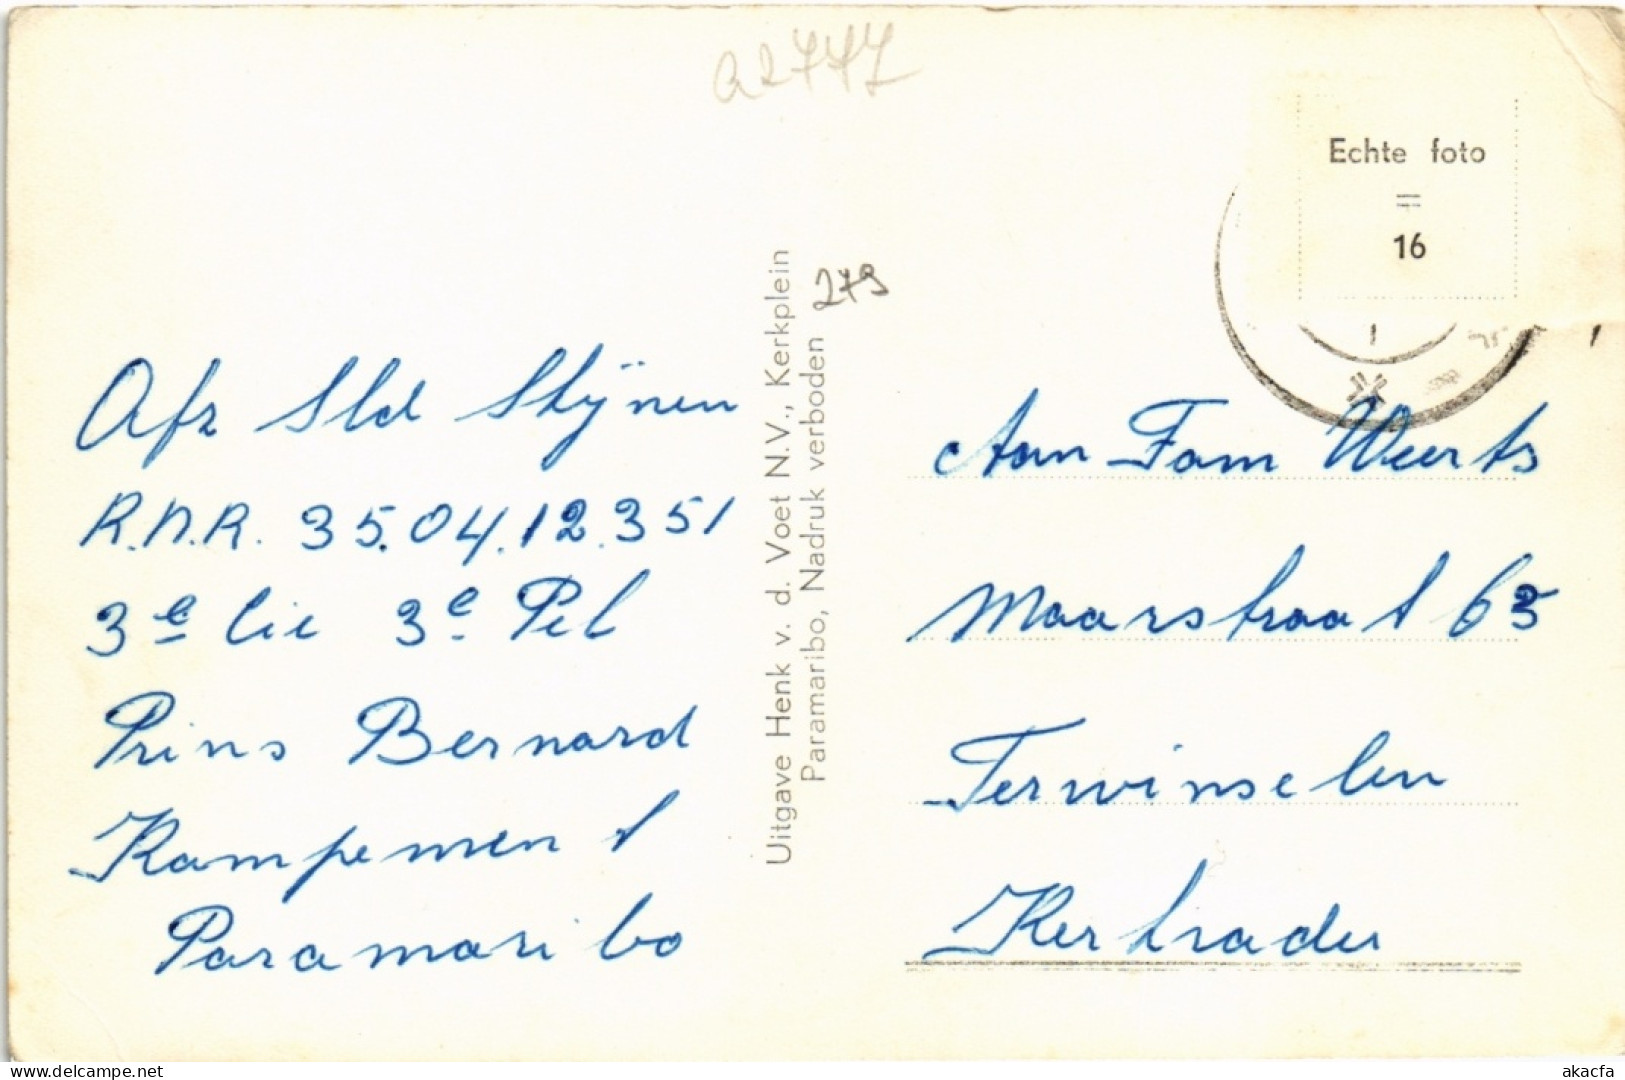 a2777
Echte foto
=
16
Uitgave Henk v. d. Voet N.V., Kerkplein
Paramaribo, Nadruk verboden
279
Afz Sld Stÿnen
R.N.R. 35.04.12.351
3e Cie 3e Pel
Prins Bernard
Kampement
Paramaribo
Aan Fam Weerts
Maarstraat 63
Terwinselen
Kerkrade
delcampe.net
akacfa